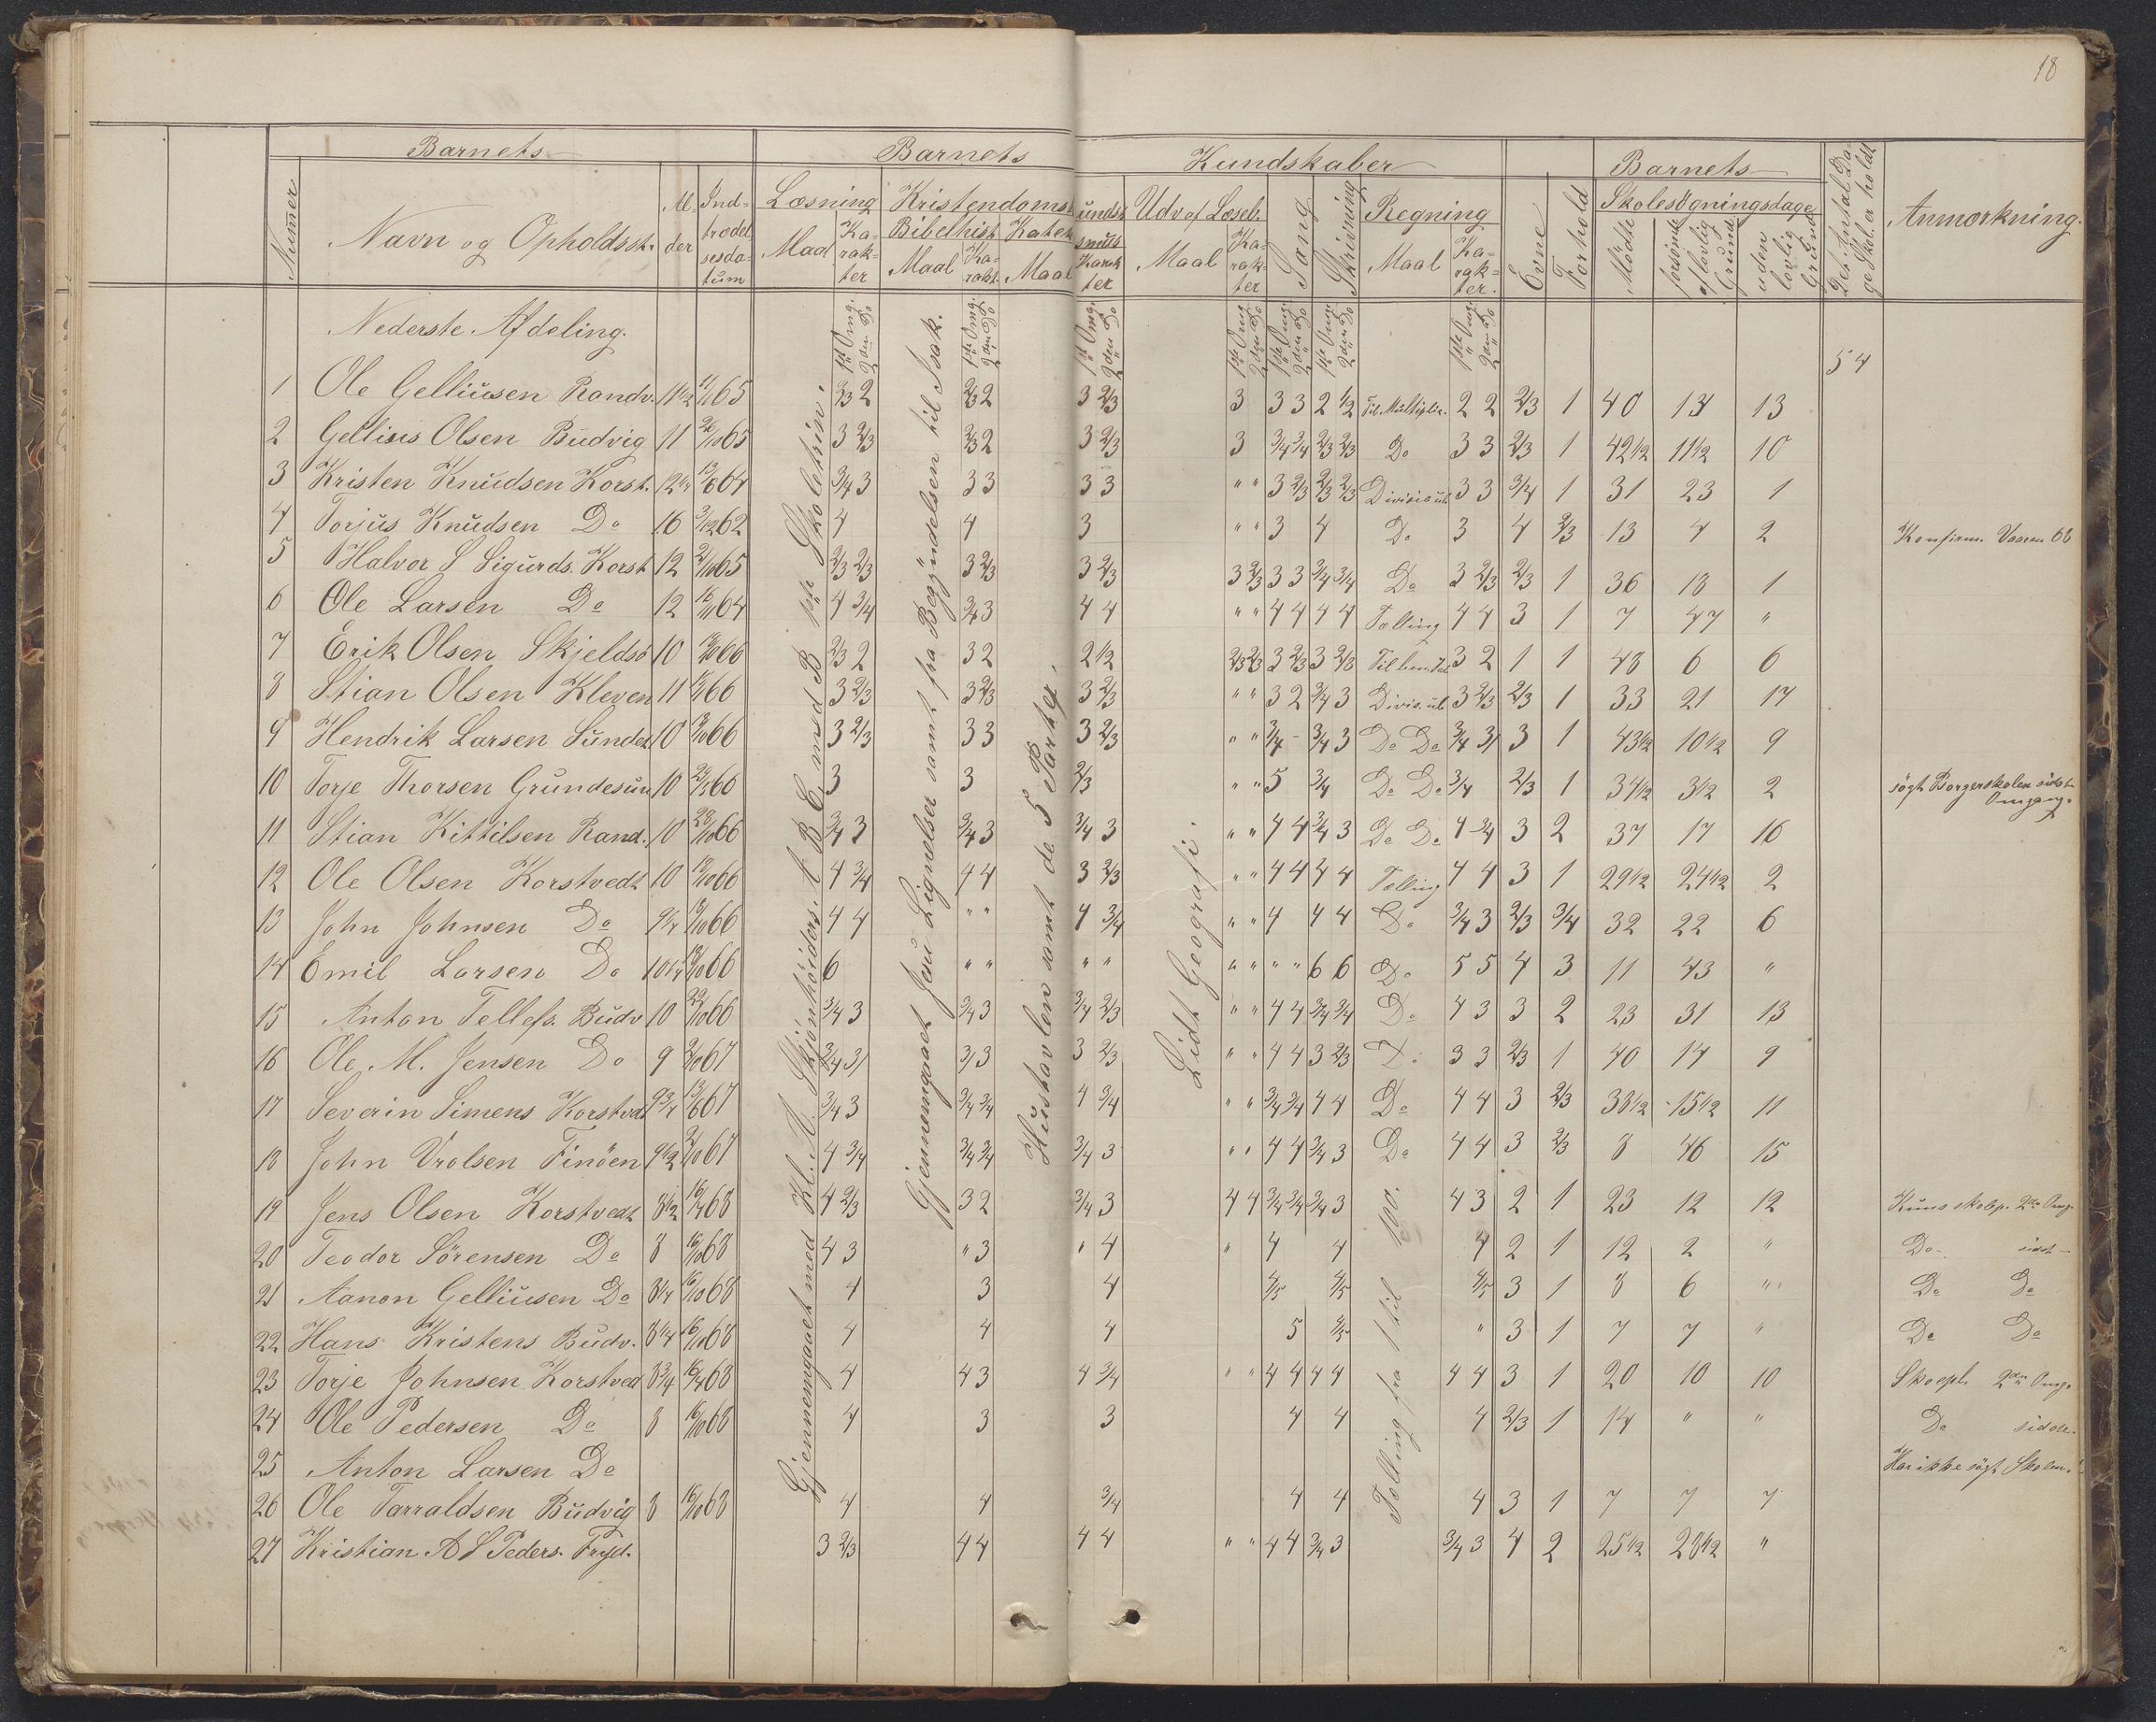 18
Barnets Barnets Kundskaber Barnets
Numer Navn og Opholdsst. Al- der Ind- trædel sesda- tum Læsning Kristendoms- kundsk. Udv. af Læseb. Sang Skrivning Regning Evne Forhold Skolesøgningsdage Det Antal Da- ge Skol. er holdt Anmærkning.
Maal Ka- rak- ter Bibelhist. Maal Ka- rakt. Katek Maal smus Karak ter Maal Ka- rak- ter Maal Ka- rak- ter. Mödte forsömte af lovlig Grund uden lovlig Grund
Nederste Afdeling. 1ste Omg. 2den Do
54
1 Ole Gelliusen Randv. 11 1/2 65 2/3 2 2/3 2 3 2/3 3 3 3 2 1/2 Til Multiplic. 2 2 2/3 1 40 14 13
2 Gellius Olsen Budvig 11 65 3 2/3 2/3 2 3 2/3 3 3/4 3/4 2/3 2/3 Do 3 3 2/3 1 42 1/2 11 1/2 10
3 Kristen Knudsen Korst. 12 1/4 64 3/4 3 3 3 3 3 " " 3 2/3 2/3 2/3 Division 3 3 3/4 1 31 23 1
4 Torjus Knudsen Do 16 62 4 4 3 " " 3 4 Do 3 4 2/3 13 4 2 Konfirm. Vaaren 68
5 Halvor S Sigurds. Korst 12 65 2/3 2/3 3 2/3 3 2/3 3 2/3 3 3 3/4 3/4 Do 3 2/3 2/3 1 36 18 1
6 Ole Larsen Do 12 64 4 3/4 3/4 3 4 4 " " 4 4 4 4 Tælling 4 4 3 1 7 47 "
7 Erik Olsen Skjeldsö 10 66 2/3 2 3 2 2 1/2 2/3 2/3 3 2/3 3 2/3 3 2 1 1 48 6 6
8 Stian Olsen Kleven 11 66 3 2/3 3 2/3 3 2/3 " " 3 2 3/4 3 Divis. 3 2/3 2/3 1 33 21 14
9 Hendrik Larsen Sundet 10 66 3 2/3 3 3 3 2/3 " " 3/4 - 3/4 3 Do Do 3/4 3 3 1 43 1/2 10 1/2 9
10 Torje Thorsen Grundesun 10 66 3 3 2/3 " " 5 3/4 Do Do 3/4 2/3 1 34 1/2 3 1/2 2 sögt Borgerskolen sidste Omgang.
11 Stian Kittilsen Rand. 10 66 3/4 3 3/4 3 3/4 3 " " 4 4 3/4 3 Do Do 4 3/4 3 2 37 17 16
12 Ole Olsen Korstvedt 10 66 4 3/4 4 4 3 2/3 " " 4 4 4 4 Tælling 4 4 3 1 29 1/2 24 1/2 2
13 John Johnsen Do 9 1/4 66 4 4 " " 4 3/4 " " 4 4 4 Do 3/4 3 2/3 3/4 32 22 6
14 Emil Larsen Do 10 1/4 66 6 " " " " " " " " 6 6 Do 5 5 4 3 11 43 "
15 Anton Tellefs. Budv 10 66 3/4 3 3/4 3 3/4 2/3 " " 4 4 3/4 3/4 Do 4 3 3 2 23 31 13
16 Ole M. Jensen Do 9 67 3/4 3 3 3 3 2/3 " " 4 4 3 2/3 Do 3 3 2/3 1 40 14 9
17 Severin Simens Korstvedt 9 3/4 67 3/4 3 3/4 3/4 4 3/4 " " 3/4 3/4 4 4 Do 4 4 3 2/3 38 1/2 15 1/2 11
18 John Vrolsen Finöen 9 1/2 67 4 3/4 3/4 3/4 3/4 3 " " 4 4 3/4 3 Do 4 4 3 2/3 8 46 15
19 Jens Olsen Korstvedt 8 1/2 68 4 2/3 3 2 3/4 3 4 4 3/4 3/4 3/4 3 4 3 2 1 23 12 12 Kuns skolep. 2den Omg.
20 Teodor Sörensen Do 8 68 4 3 " 3 " 4 " 4 4 4 2 1 12 2 " Do sidst
21 Aanon Gelliusen Do 8 1/4 68 4 3 4 4/5 4/5 4/5 3 1 8 6 " Do Do
22 Hans Kristens Budv. 8 1/4 68 4 4 4 5 4/5 " 3 1 7 7 " Do Do
23 Torje Johnsen Korstved 8 3/4 68 4 4 3 4 3/4 " " 4 4 4 4 4 4 3 1 20 10 10 Skoepl. 2den Omg.
24 Ole Pedersen Do 8 68 4 3 3 4 4 4 2/3 1 14 " " Do sidste.
25 Anton Larsen Do Har ikke sögt Skolen.
26 Ole Tarraldsen Budvig 8 68 4 4 3/4 4 4 4 3 1 7 7 7
27 Kristian A S Peders. Fryd. 3 2/3 4 4 4 4 " " 4 4 3/4 3 3/4 3 4 2 25 1/2 28 1/2 "
Gjennemgaaet med Kl. A. Skjönhöiders A B C, med B pp Skoletrin.
Gjennemgaaet Jesu Lignelser samt fra Begyndelsen til Isak.
Hustavlen samt de 5 Parter.
Lidt Geografi.
Tælling fra 1 til 100.